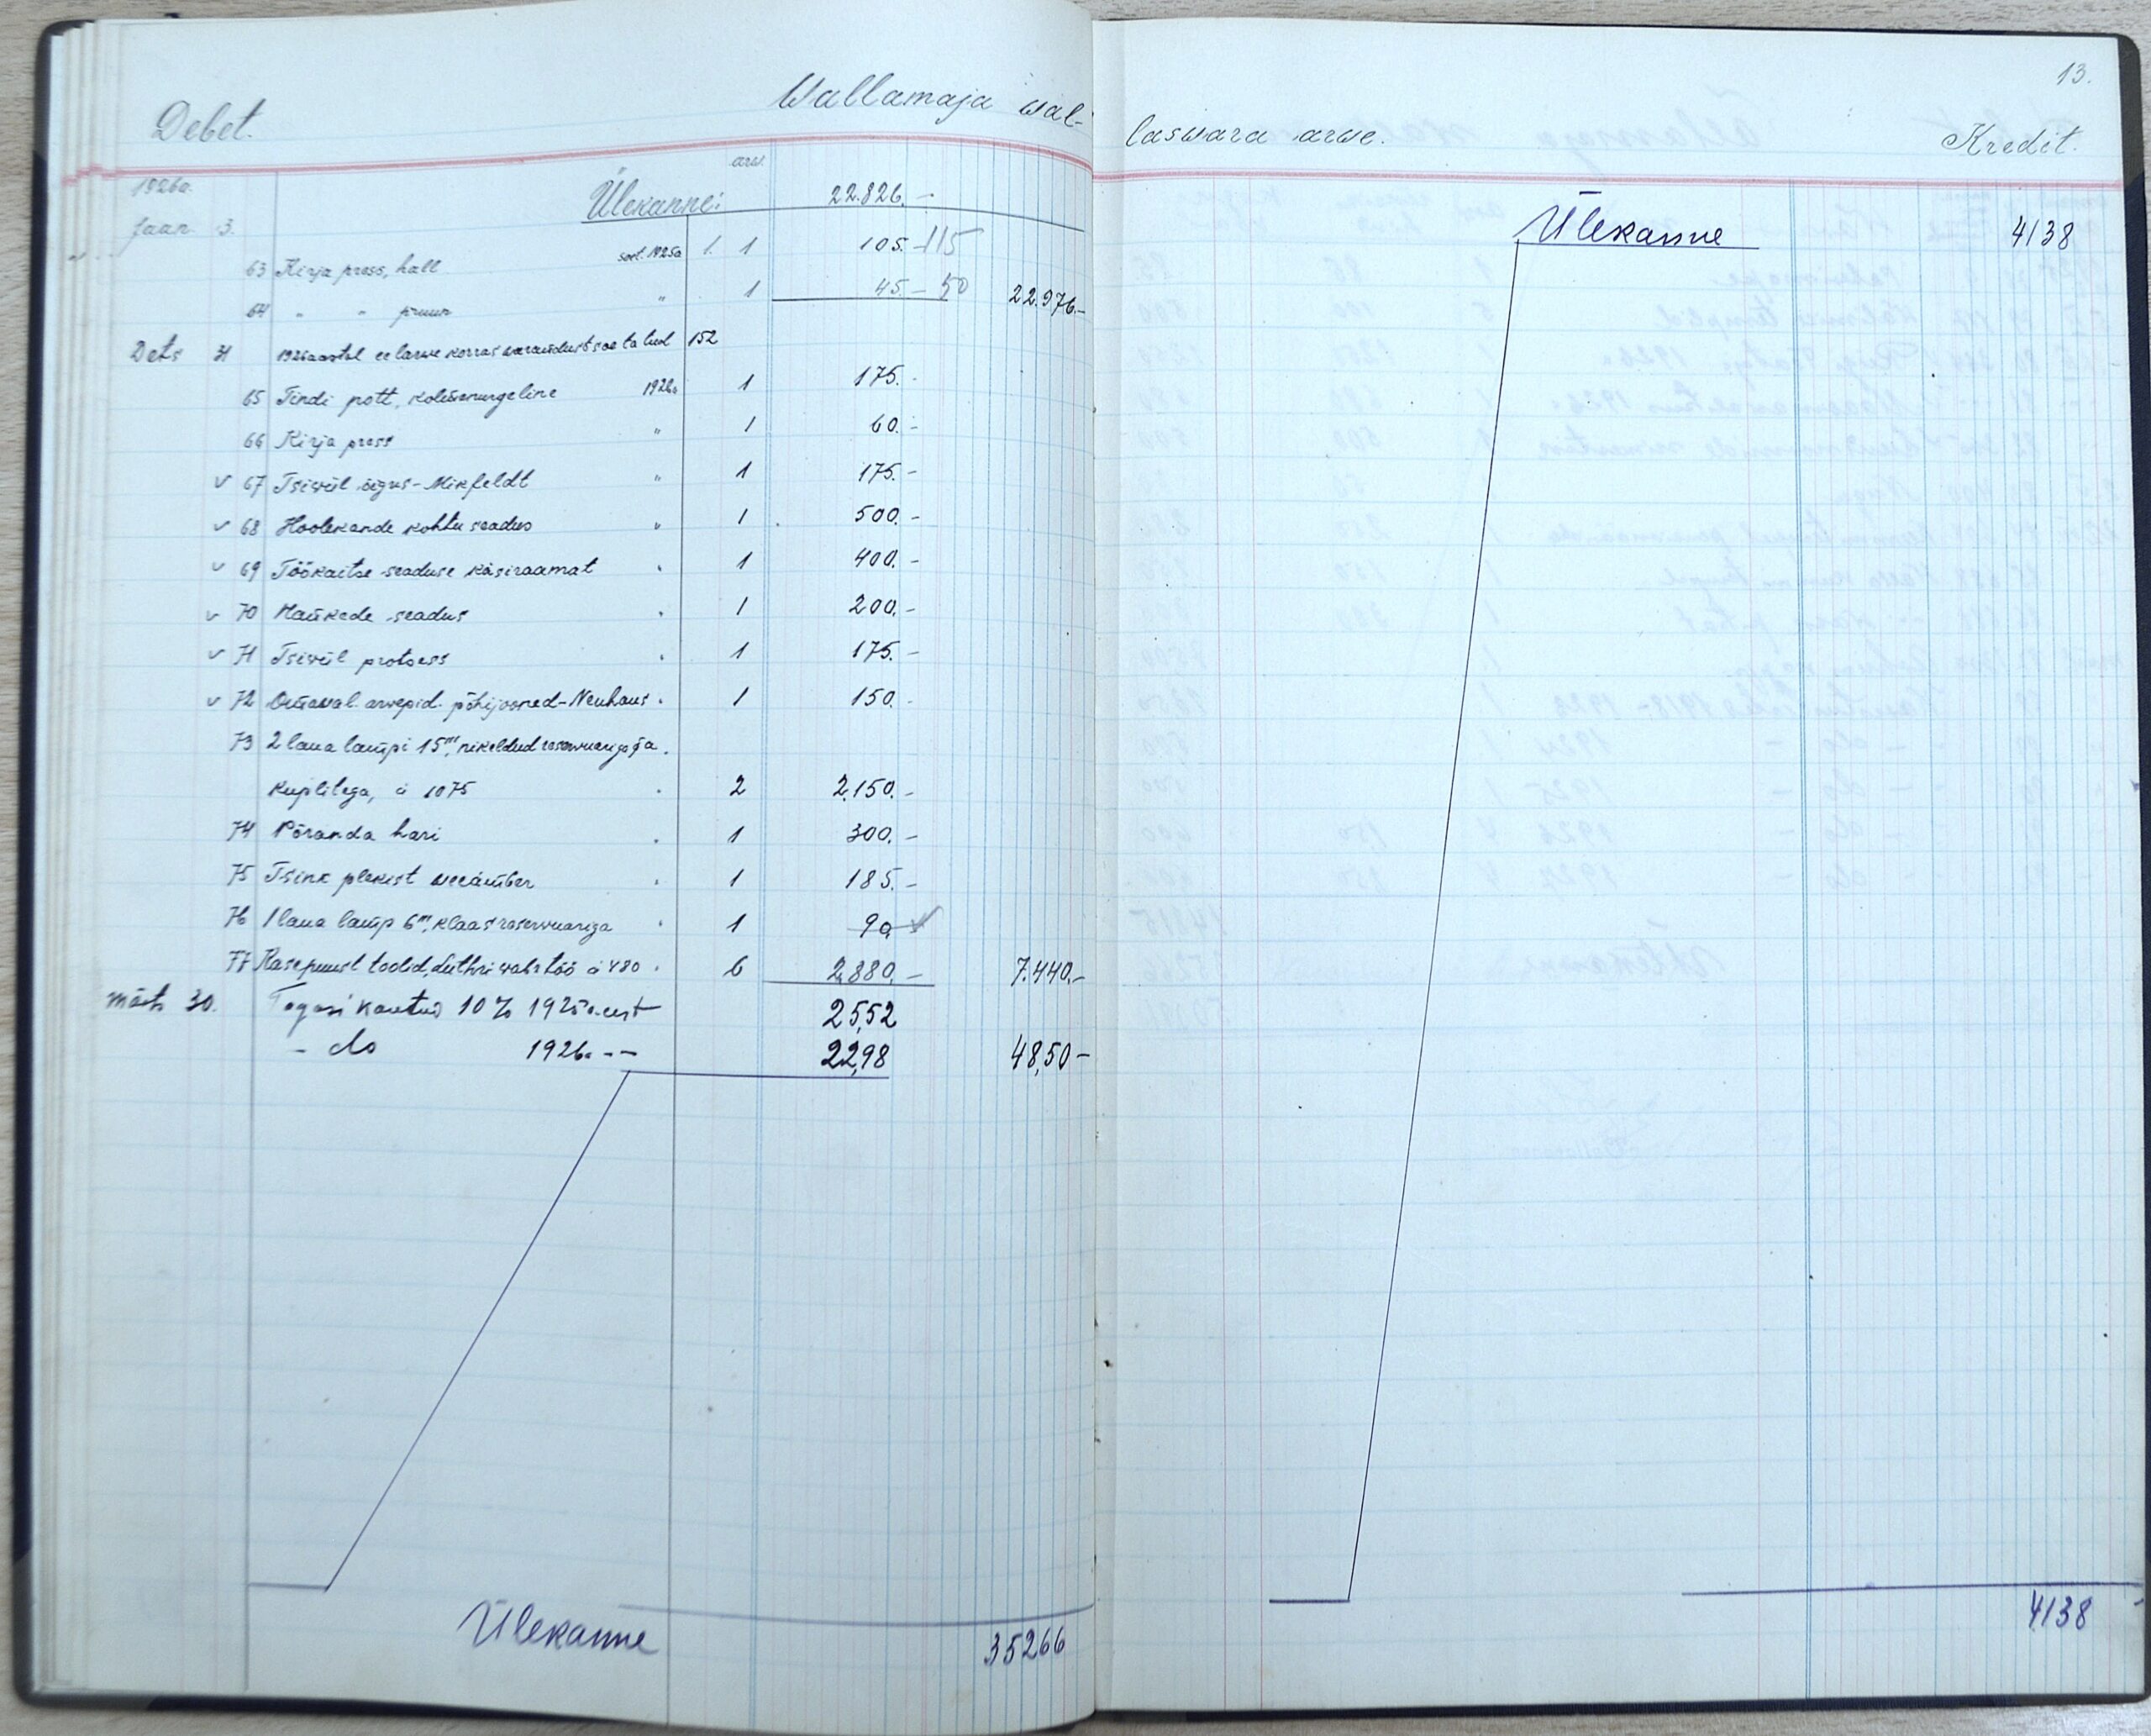 13.
Debet. Wallamaja wal-
laswara arwe. Kredit.
1926a. arw.
Ülekanne: 22.826.-
Jaan. 3.
63 Kirja press, hall soet. 1925a 1. 1 105.- 115
64 " " pruun " 1 45.- 50 22.976.-
Dets 31 1926 aastal eelarwe korras warandust soetatud 152
65 Tindi pott, kolmenurgeline 1926a 1 175.-
66 Kirja press " 1 60.-
v 67 Tsiwiil õigus - Mikfeldt " 1 175.-
v 68 Hoolekande kohtu seadus " 1 500.-
v 69 Töökaitse seaduse käsiraamat " 1 400.-
v 70 Haukede seadus " 1 200.-
v 71 Tsiwiil protsess " 1 175.-
v 72 Omaval. arwepid. põhijooned - Neuhaus " 1 150.-
73 2 laua lampi 15''', nikeldud reserwuariga ja "
kuplitega, à 1075 " 2 2.150.-
74 Põranda hari " 1 300.-
75 Tsink plekist weeämber " 1 185.-
76 1 laua lamp 6''', klaas reserwuariga " 1 90
77 Kasepuust toolid, Luthri wabr. töö à 480 " 6 2.880.- 7.440.-
Märts 30. Tagasi kantud 10% 1925a. eest 25,52
- do 1926a - - 22,98 48,50-
Ülekanne 35266
Ülekanne 4138
4138